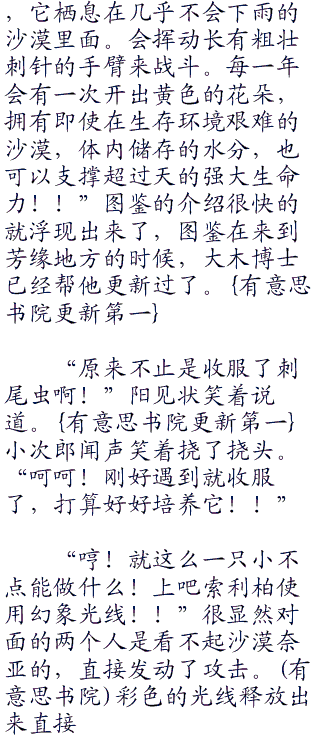 ，它栖息在几乎不会下雨的
沙漠里面。会挥动长有粗壮
刺针的手臂来战斗。每一年
会有一次开出黄色的花朵，
拥有即使在生存环境艰难的
沙漠，体内储存的水分，也
可以支撑超过天的强大生命
力！！”图鉴的介绍很快的
就浮现出来了，图鉴在来到
芳缘地方的时候，大木博士
已经帮他更新过了。{有意思
书院更新第一}
“原来不止是收服了刺
尾虫啊！”阳见状笑着说
道。{有意思书院更新第一}
小次郎闻声笑着挠了挠头。
“呵呵！刚好遇到就收服
了，打算好好培养它！！”
“哼！就这么一只小不
点能做什么！上吧索利柏使
用幻象光线！！”很显然对
面的两个人是看不起沙漠奈
亚的，直接发动了攻击。(有
意思书院)彩色的光线释放出
来直接